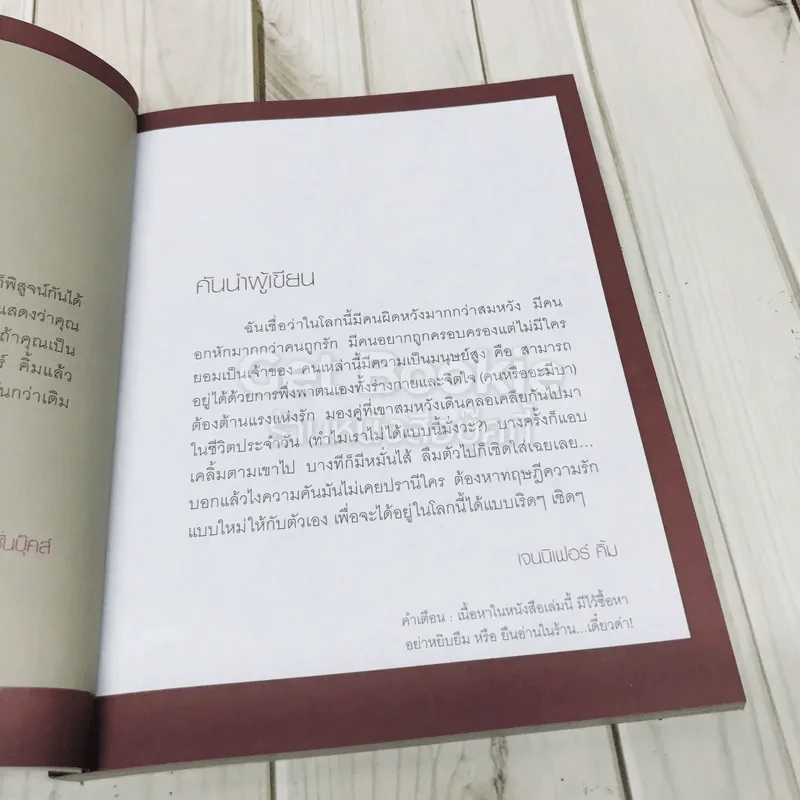 ก็พิสูจน์กันได้
แสดงว่าคุณ
ถ้าคุณเป็น
ร์ คิ้มแล้ว
ันกว่าเดิม
ชั่นบุ๊คส์
คันนำผู้เขียน
ฉันเชื่อว่าในโลกนี้มีคนผิดหวังมากกว่าสมหวัง มีคน
อกหักมากกว่าคนถูกรัก มีคนอยากถูกครอบครองแต่ไม่มีใคร
ยอมเป็นเจ้าของ คนเหล่านี้มีความเป็นมนุษย์สูง คือ สามารถ
อยู่ได้ด้วยการพึ่งพาตนเองทั้งร่างกายและจิตใจ (คนหรืออะมีบา)
ต้องต้านแรงแห่งรัก มองคู่ที่เขาสมหวังเดินคลอเคลียกันไปมา
ในชีวิตประจำวัน (ทำไมเราไม่ได้แบบนี้มั่งวะ?) บางครั้งก็แอบ
เคลิ้มตามเขาไป บางทีก็มีหมั่นไส้ ลืมตัวไปก็เชิดใส่เฉยเลย...
บอกแล้วไงความคันมันไม่เคยปรานีใคร ต้องหาทฤษฎีความรัก
แบบใหม่ให้กับตัวเอง เพื่อจะได้อยู่ในโลกนี้ได้แบบเริดๆ เชิดๆ
เจนนิเฟอร์ คิ้ม
คำเตือน : เนื้อหาในหนังสือเล่มนี้ มีไว้ซื้อหา
อย่าหยิบยืม หรือ ยืนอ่านในร้าน...เดี๋ยวด่า!
Get Bookie